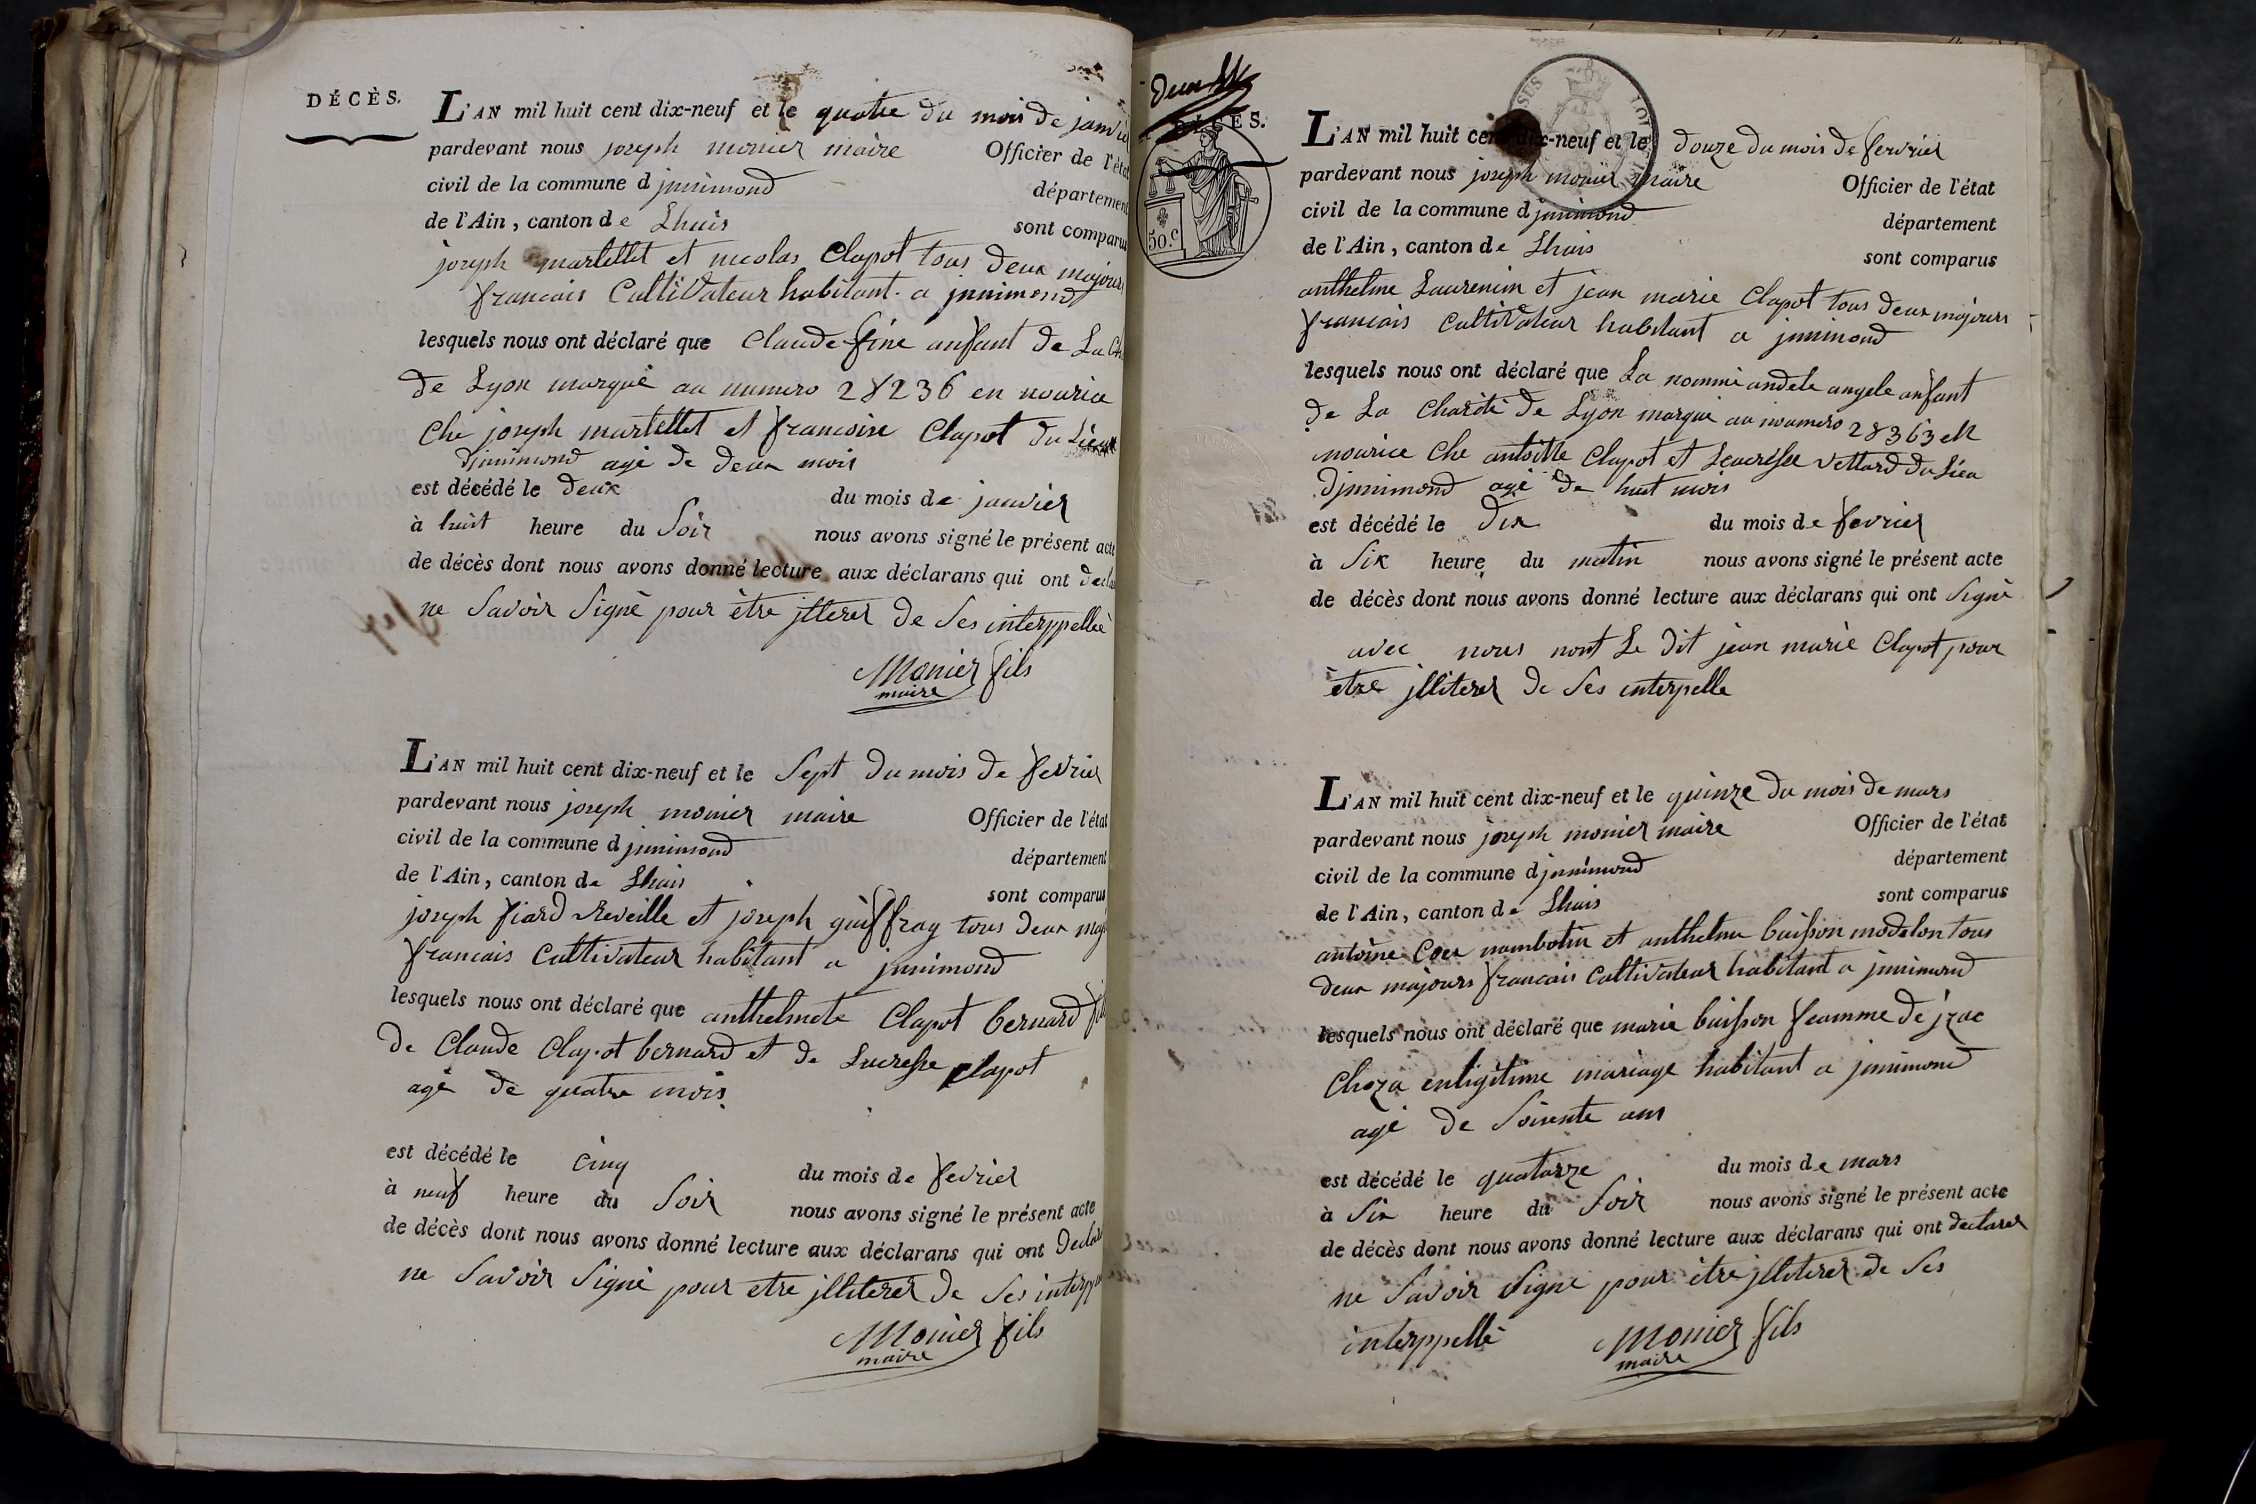 DÉCÈS.
L'AN mil huit cent dix-neuf et le quatre du mois de janvie
pardevant nous joseph monier maire Officier de l'état
civil de la commune d jnnimond département
de l'Ain, canton de Lhuis sont comparus
joseph martellet et nicolas Clapot tous deux majours
francais Cultivateur habitant a jnnimond
lesquels nous ont déclaré que Claude fine anfant de La Ch
de Lyon marqué au numero 28236 en nourice
Che joseph martellet et francoise Clapot du Lieu
djnnimond agé de deux mois
est décédé le deux du mois de janvier
à huit heure du Soir nous avons signé le présent acte
de décès dont nous avons donné lecture aux déclarans qui ont decla
ne Savoir Signé pour être jlterer de Ses interppellée
Monier fils
maire
L'AN mil huit cent dix-neuf et le Sept du mois de fevrier
pardevant nous joseph monier maire Officier de l'état
civil de la commune d jnnimond département
de l'Ain, canton de Lhuis sont comparus
joseph fiard Reveille et joseph guiffray tous deux maj
francais Cultivateur habitant a jnnimond
lesquels nous ont déclaré que anthelmete Clapot bernard fil
de Claude Clapot bernard et de Lucresse Clapot
agé de quatre mois
est décédé le cinq du mois de fevrier
à neuf heure du Soir nous avons signé le présent acte
de décès dont nous avons donné lecture aux déclarans qui ont Declar
ne Savoir Signé pour etre jlliterer de Ses interpp
Monier fils
maire
Deux
DÉCÈS.
50.c
L'AN mil huit cent dix-neuf et le douze du mois de fevrier
pardevant nous joseph monier maire Officier de l'état
civil de la commune d jnnimond département
de l'Ain, canton de Lhuis sont comparus
anthelme Laurencin et jean marie Clapot tous deux majours
francais cultivateur habitant a jnnimond
lesquels nous ont déclaré que La nommé andele angele anfant
de La Charité de Lyon marqué au noumero 28363 en
nourice Che antoine Clapot et Leucresse vettard du Lieu
djnnimond agé de huit mois
est décédé le dix du mois de fevrier
à Six heure du matin nous avons signé le présent acte
de décès dont nous avons donné lecture aux déclarans qui ont Signé
avec nous nont Le dit jean marie Clapot pour
être jlliterer de Ses interpelle
L'AN mil huit cent dix-neuf et le quinze du mois de mars
pardevant nous joseph monier maire Officier de l'état
civil de la commune d jnnimond département
de l'Ain, canton de Lhuis sont comparus
antoine Coeu nambotin et anthelme buisson modelon tous
deux majours francais Cultivateur habitant a jnnimond
lesquels nous ont déclaré que marie buisson feamme de jzac
Choza enligitime mariage habitant a jnnimond
agé de Soisente ans
est décédé le quatorze du mois de mars
à Six heure du Soir nous avons signé le présent acte
de décès dont nous avons donné lecture aux déclarans qui ont declarer
ne Savoir Signe pour être jlliterer de Ses
interppellé Monier fils
maire